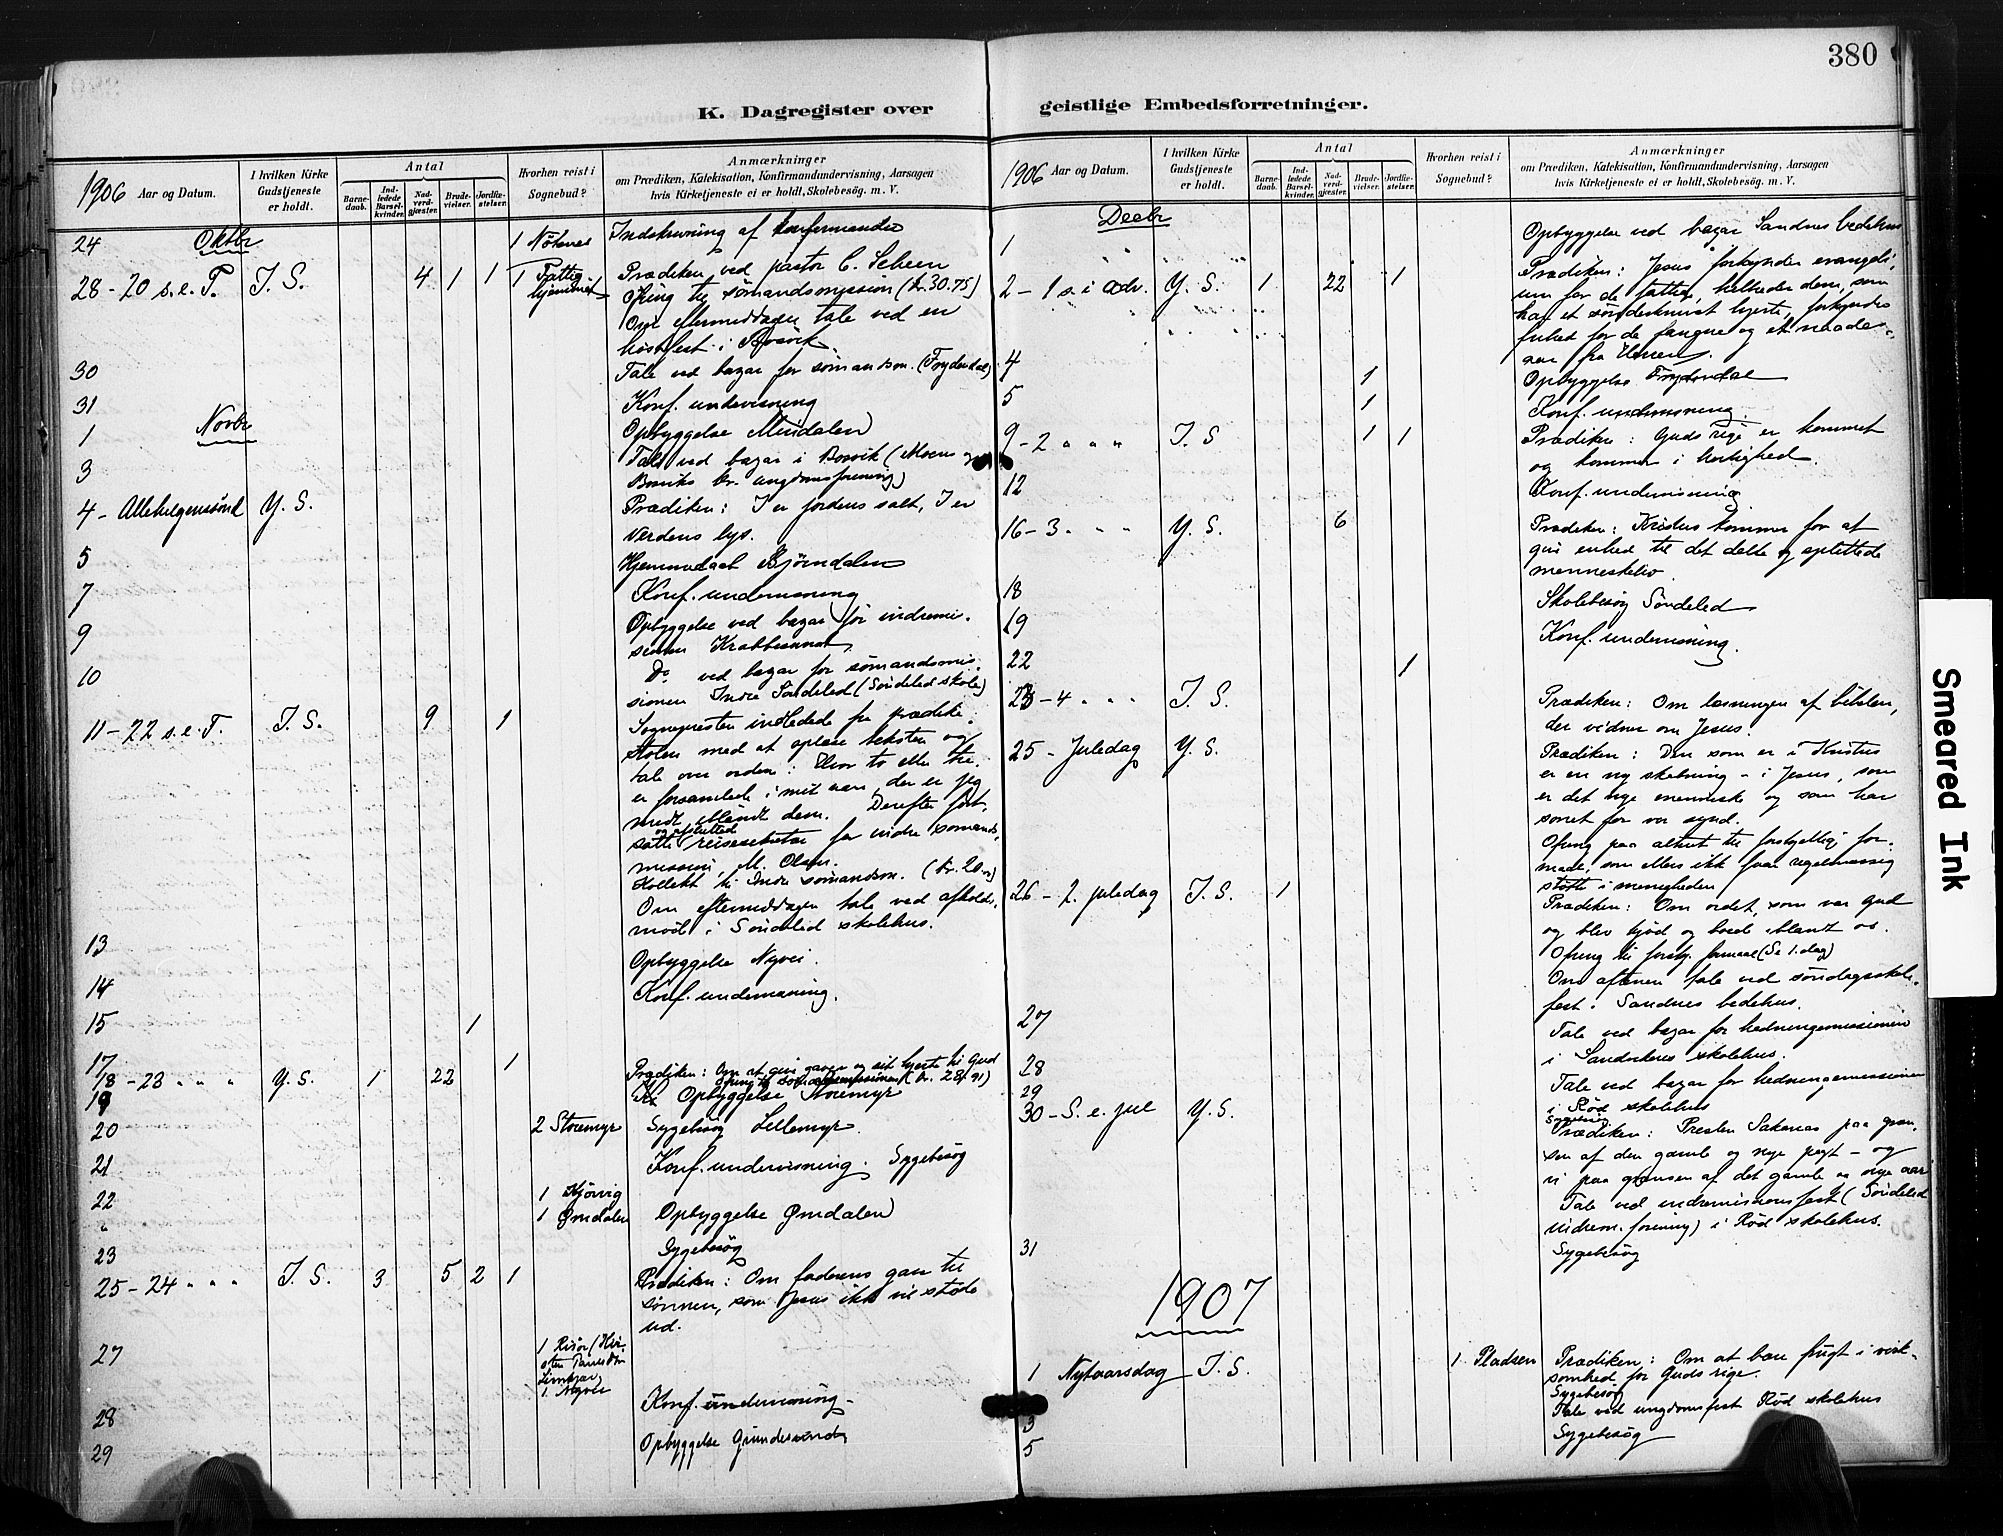 380
K. Dagregister over geistlige Embedsforretninger.
1906 Aar og Datum.
I hvilken Kirke Gudstjeneste er holdt.
Antal
Barnedaab.
Indledede Barselkvinder.
Nadverdgjæster.
Brudevielser.
Jordfæstelser.
Hvorhen reist i Sognebud?
Anmærkninger
om Prædiken, Katekisation, Konfirmandundervisning, Aarsagen
hvis Kirketjeneste ei er holdt, Skolebesög. m. V.
Oktbr
24 1 Indskrivning af konfermander
28 - 20 s.e.T. I. S. 4 1 1 1 Fattig
hjemmet
Prædiken ved pastor C. Scheen
Ofring til sömandsmission (kr. 30.75)
Om eftermiddagen tale ved en
höstfest i
30 Tale ved bazar for sömandsm. (Frydendal)
31 Konf. undervisning
Novbr
1 Opbyggelse
3 Tale ved bazar i Bosvik (Moens og
Bosviks kr. ungdomsforening)
4 - Allehelgenssönd Y. S. Prædiken: I er jordens salt, I er
verdens lys.
5 Hjemmedaab Bjørndalen
7 Konf. undervisning
9 Opbyggelse ved bazar for indremis-
sionen
10 Do ved bazar for sömandsmis-
sionen Indre Söndeled (Söndeled skole)
11 - 22 s.e.T. I. S. 9 1 Sognepresten indledede fra prædike-
stolen med at oplæse teksten og
tale om ordene: Hvor to eller tre
er forsamlede i mit navn, der er jeg
midt iblandt dem. Derefter fort-
og afsluttede
satte reisesekretær for indre sömands-
mission, M. Olsen.
Kollekt til Indre sömandsm. (kr. 20.)
Om eftermiddagen tale ved afholds-
möde i Söndeled skolehus.
13 Opbyggelse Nyvei.
14 Konf. undervisning.
15 1
17 1
18 - 23 " " " Y. S. 1 22 Prædiken: Om at give gaver og sit hjerte til Gud
Ofring til sömandsmissionen (kr. 28.91)
19 Opbyggelse Storemyr
20 2 Storemyr Sygebesög Lillemyr.
21 Konf. undervisning. Sygebesög
22 1 Kjörvig
" 1 Ømdalen Opbyggelse Ømdalen
23 Sygebesög
25 - 24 " " " I. S. 3 5 2 1 Prædiken: Om faderens gave til
sönnen, som Jesus ikke vil støde
ud.
27 1 Risör
1. Nyvei
28 Konf. undervisning.
29 Opbyggelse Grundesund
1906 Aar og Datum.
I hvilken Kirke Gudstjeneste er holdt.
Antal
Barnedaab.
Indledede Barselkvinder.
Nadverdgjæster.
Brudevielser.
Jordfæstelser.
Hvorhen reist i Sognebud?
Anmærkninger
om Prædiken, Katekisation, Konfirmandundervisning, Aarsagen
hvis Kirketjeneste ei er holdt, Skolebesög. m. V.
Decbr
1 Opbyggelse ved bazar Sandnes bedehus
2 - 1 s. i adv. Y. S. 1 22 1 Prædiken: Jesus forkynder evangeli-
um for de fattige, helbreder dem, som
har et sönderknust hjerte, forkynder
frihed for de fangne og et naade-
aar fra Herren.
4 1 Opbyggelse Frydendal
5 1 Konf. undervisning.
9 - 2 " " " I. S 1 1 Prædiken: Guds rige er kommet
og kommer i herlighed.
12 Konf. undervisning
16 - 3 " " " Y. S. 6 Prædiken: Kristus kommer for at
give enhed til det delte og splittede
menneskeliv.
18 Skolebesög Söndeled
19 Konf. undervisning.
22 1
23 - 4 " " " I. S. Prædiken: Om læsningen af bibelen,
der vidner om Jesus.
25 - Juledag Y. S. Prædiken: Den som er i Kristus
er en ny skabning - i Jesus, som
er det nye menneske og som har
sonet for vor synd.
Ofring paa alteret til forskjellig for-
maal, som ellers ikke faar regelmæssig
støtte i menigheden
26 - 2. juledag I. S. 1 Prædiken: Om ordet, som var Gud
og blev kjöd og boede iblandt os.
Ofring til forskj. formaal (Se 1. dag)
Om aftenen tale ved söndagsskole-
fest. Sandnes bedehus.
27 Tale ved bazar for hedningemissionen
i Sandakers skolehus.
28 Tale ved bazar for hedningemissionen
i Röd skolehus
29 Sygebesög
30 - S. e. jul Y. S. Prædiken: Presten Sakarias paa græn-
sen af den gamle og nye pagt - og
vi paa grænsen af det gamle og nye aar
Tale ved indremissionsfest (Söndeled
indrem. forening) i Röd skolehus.
31 Sygebesög
1907
1 Nytaarsdag I. S. 1 Pladsen Prædiken: Om at bære frugt i virk-
somhed for Guds rige.
Sygebesög
3 Tale ved ungdomsfest Röd skolehus
5 Sygebesög
Smeared Ink